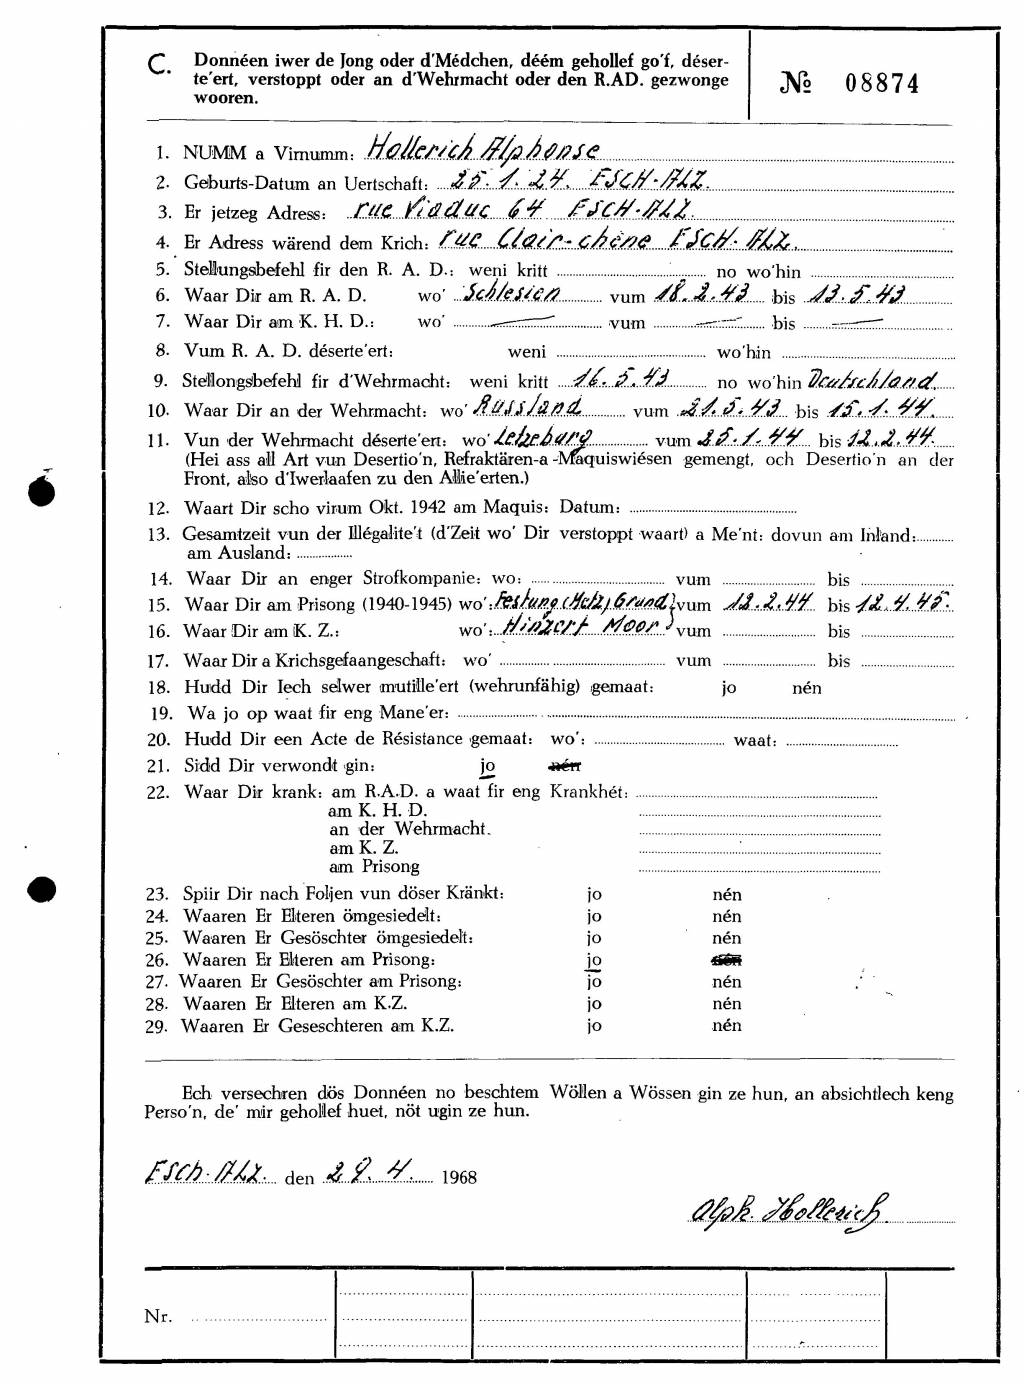 C. Donnéen iwer de Jong oder d'Médchen, déém gehollef go'f, déser-
te'ert, verstoppt oder an d'Wehrmacht oder den R.AD. gezwonge
wooren.
№ 08874
1. NUMM a Virnumm: Hollerich Alphonse
2. Geburts-Datum an Uertschaft: 25.1.24. ESCH-ALZ.
3. Er jetzeg Adress: rue Viaduc 64 ESCH-ALZ.
4. Er Adress wärend dem Krich: rue Clair-chêne ESCH-ALZ.
5. Stellungsbefehl fir den R. A. D.: weni kritt no wo'hin
6. Waar Dir am R. A. D. wo' Schlesien vum 18.2.43 bis 13.5.43
7. Waar Dir am K. H. D.: wo' — vum — bis —
8. Vum R. A. D. déserte'ert: weni wo'hin
9. Stellongsbefehl fir d'Wehrmacht: weni kritt 16.5.43 no wo'hin Deutschland
10. Waar Dir an der Wehrmacht: wo' Russland vum 21.5.43 bis 15.1.44.
11. Vun der Wehrmacht déserte'ert: wo' Letzeburg vum 25.1.44 bis 12.2.44.
(Hei ass all Art vun Desertio'n, Refraktären-a-Maquiswiésen gemengt, och Desertio'n an der
Front, also d'Iwerlaafen zu den Allie'erten.)
12. Waart Dir scho virum Okt. 1942 am Maquis: Datum:
13. Gesamtzeit vun der Illégalite't (d'Zeit wo' Dir verstoppt waart) a Me'nt: dovun am Inland:
am Ausland:
14. Waar Dir an enger Strofkompanie: wo: vum bis
15. Waar Dir am Prison​g (1940-1945) wo': Festung (Metz) Grund} vum 12.2.44 bis 12.4.45.
16. Waar Dir am K. Z.: wo': Hinzert Moor vum bis
17. Waar Dir a Krichsgefaangeschaft: wo' vum bis
18. Hudd Dir Iech selwer mutille'ert (wehrunfähig) gemaat: jo nén
19. Wa jo op waat fir eng Mane'er:
20. Hudd Dir een Acte de Résistance gemaat: wo': waat:
21. Sidd Dir verwondt gin: jo nén
22. Waar Dir krank: am R.A.D. a waat fir eng Krankhét:
am K. H. D.
an der Wehrmacht.
am K. Z.
am Prisong
23. Spiir Dir nach Foljen vun döser Kränkt: jo nén
24. Waaren Er Elteren ömgesiedelt: jo nén
25. Waaren Er Gesöschter ömgesiedelt: jo nén
26. Waaren Er Elteren am Prisong: jo nén
27. Waaren Er Gesöschter am Prisong: jo nén
28. Waaren Er Elteren am K.Z. jo nén
29. Waaren Er Geseschteren am K.Z. jo nén
Ech versechren dös Donnéen no beschtem Wöllen a Wössen gin ze hun, an absichtlech keng
Perso'n, de' mir gehollef huet, nöt ugin ze hun.
ESCh-ALZ. den 29.4. 1968
Alph. Hollerich
Nr.